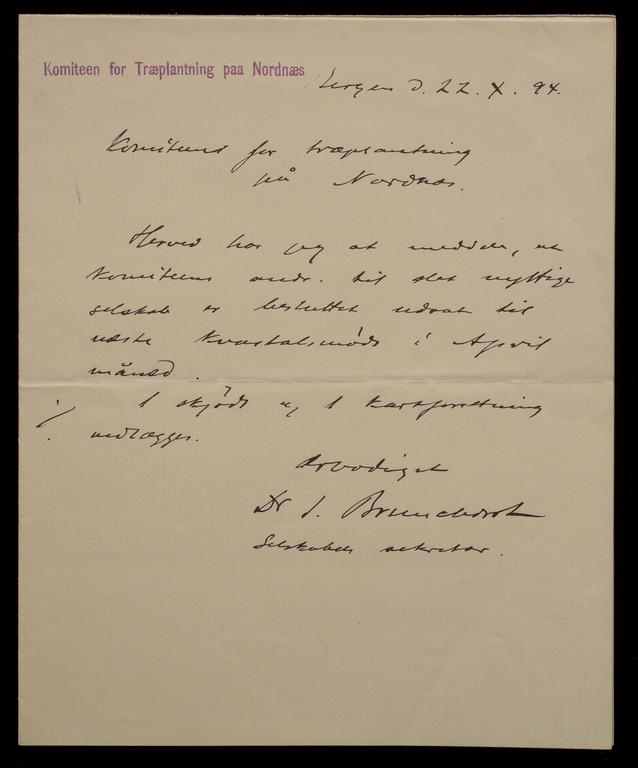 Komiteen for Træplantning paa Nordnæs
Bergen d. 22. X. 94.
Komiteens for træplantning
på Nordnæs.
Herved har jeg at meddele, at
Komiteens andr. til det nyttige
selskab er besluttet udsat til
næste Kvartalsmøde i April
måned.
1 skjøde og 1 kartforretning
vedlægges.
Ærbødigst
Dr J. Brunchorst
Selskabets sekretær.